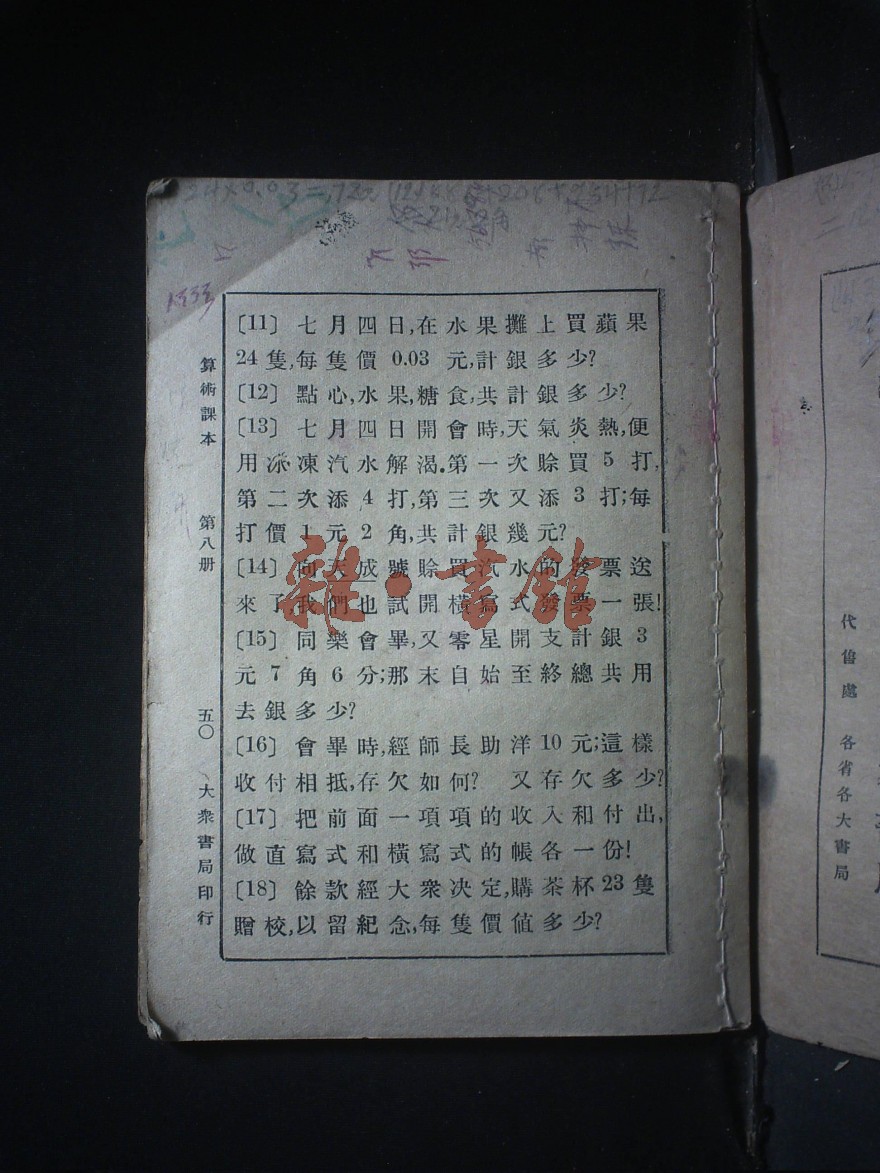 24×0.03=.72
〔11〕 七月四日,在水果攤上買蘋果
24隻,每隻價 0.03 元,計銀多少?
〔12〕 點心,水果,糖食,共計銀多少?
〔13〕 七月四日開會時,天氣炎熱,便
用冰凍汽水解渴.第一次賒買 5 打,
第二次添 4 打,第三次又添 3 打;每
打價 1 元 2 角,共計銀幾元?
〔14〕 向天成號賒買汽水的發票送
來了,我們也試開橫寫式發票一張!
〔15〕 同樂會畢,又零星開支計銀 3
元 7 角 6 分;那末自始至終總共用
去銀多少?
〔16〕 會畢時,經師長助洋 10 元;這樣
收付相抵,存欠如何? 又存欠多少?
〔17〕 把前面一項項的收入和付出,
做直寫式和橫寫式的帳各一份!
〔18〕 餘款經大衆決定,購茶杯 23 隻
贈校,以留紀念,每隻價值多少?
算術課本 第八册 五〇 大衆書局印行
代售處 各省各大書局
雜·書館